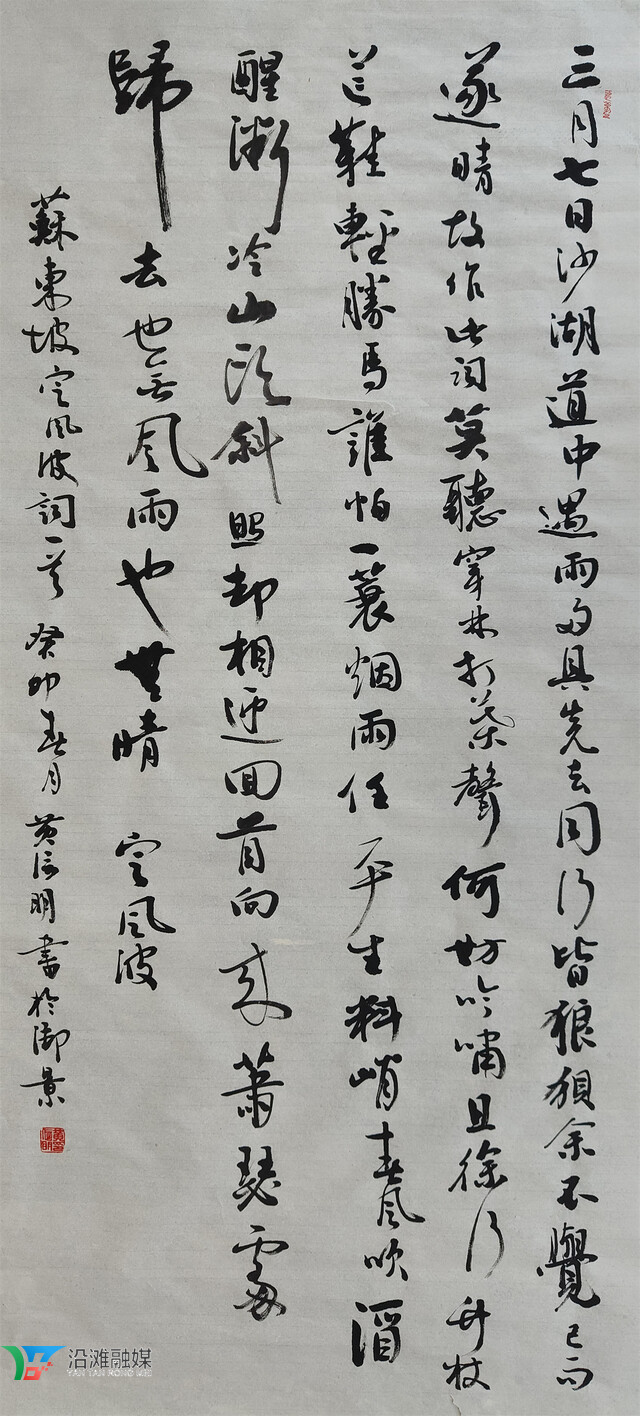 三月七日沙湖道中遇雨雨具先去同行皆狼狽余不覺已而
遂晴故作此詞莫聽穿林打葉聲何妨吟嘯且徐行竹杖
芒鞋輕勝馬誰怕一蓑烟雨任平生料峭春風吹酒
醒冷山頭斜照却相迎回首向來蕭瑟處
歸去也無風雨也無晴 定風波
蘇東坡定風波詞一首 癸卯春月 黄明書於御景
沿滩融媒
YAN TAN RONG MEI